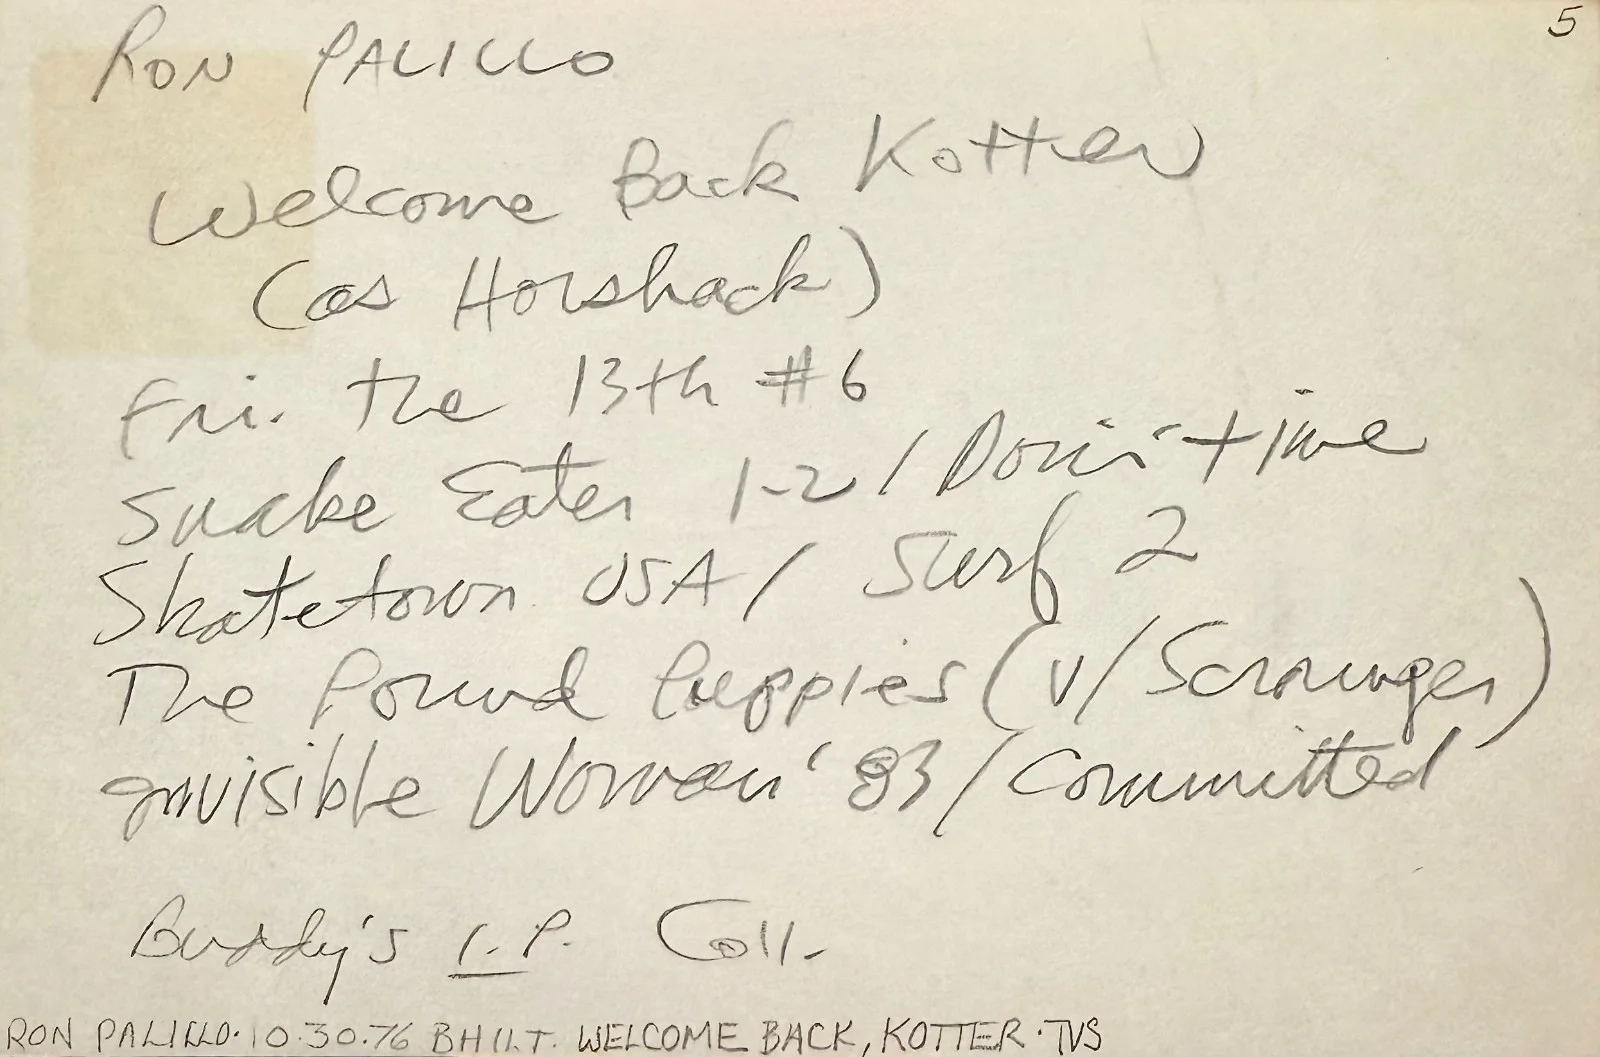 5
RON PALILLO
Welcome Back Kotter
(as Horshack)
Fri. the 13th #6
Snake Eater 1-2 / Doin' time
Skatetown USA / Surf 2
The Pound Puppies (v/Scrounger)
Invisible Woman '83 / Committed
Buddy's I.P. Coll.
RON PALILLO. 10.30.76 BHILT. WELCOME BACK, KOTTER. TVS